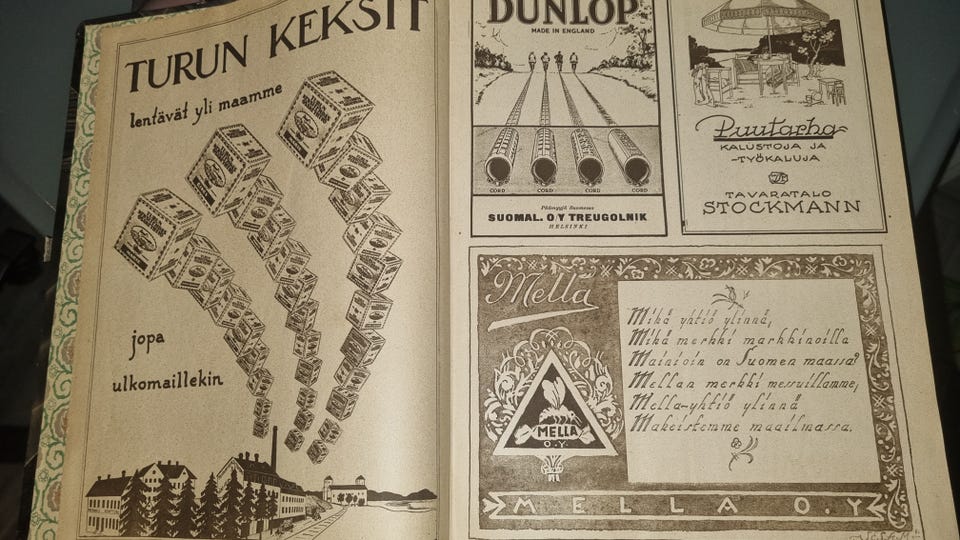 TURUN KEKSIT
lentävät yli maamme
jopa
ulkomaillekin
DUNLOP
MADE IN ENGLAND
CORD CORD CORD CORD
Päämyyjä Suomessa
SUOMAL. O/Y TREUGOLNIK
HELSINKI
Puutarha
KALUSTOJA JA
-TYÖKALUJA
TAVARATALO
STOCKMANN
Mella
MELLA
O.Y.
Mikä yhtiö ylinnä,
Mikä merkki markkinoilla
Mainioin on Suomen maassa?
Mellan merkki messuillamme,
Mella-yhtiö ylinnä
Makeistemme maailmassa.
MELLA O.Y